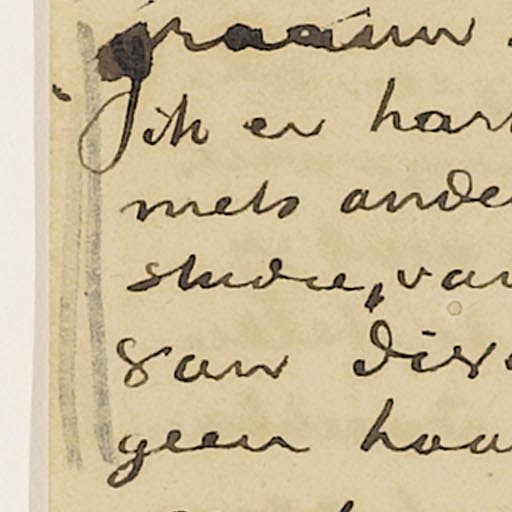 graauw
ik er har
niets ande
studie, van
San die
geen hoo